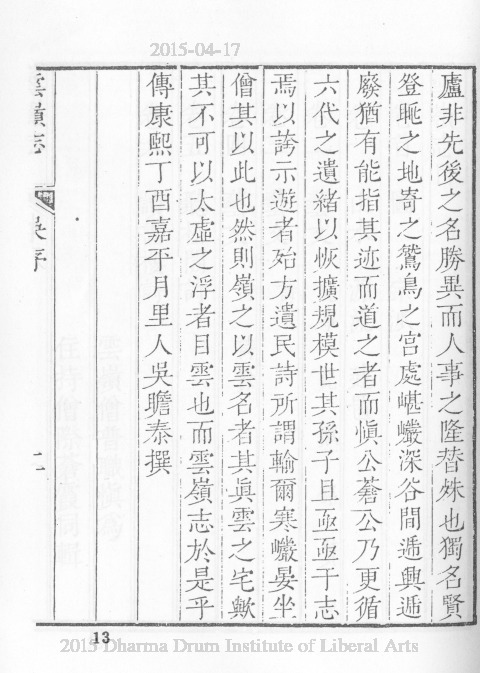 2015-04-17
廬非先後之名勝異而人事之隆替殊也獨名賢
登眺之地寄之鷲鳥之宮處嵁巖深谷間遞興遞
廢猶有能指其迹而道之者而愼公蓍公乃更循
六代之遺緒以恢擴規模世其孫子且亟亟于志
焉以誇示遊者殆方遺民詩所謂輸爾寒巖晏坐
僧其以此也然則嶺之以雲名者其眞雲之宅歟
其不可以太虛之浮者目雲也而雲嶺志於是乎
傳康熙丁酉嘉平月里人吳瞻泰撰
雲嶺志
吳序
二
13
2015 Dharma Drum Institute of Liberal Arts